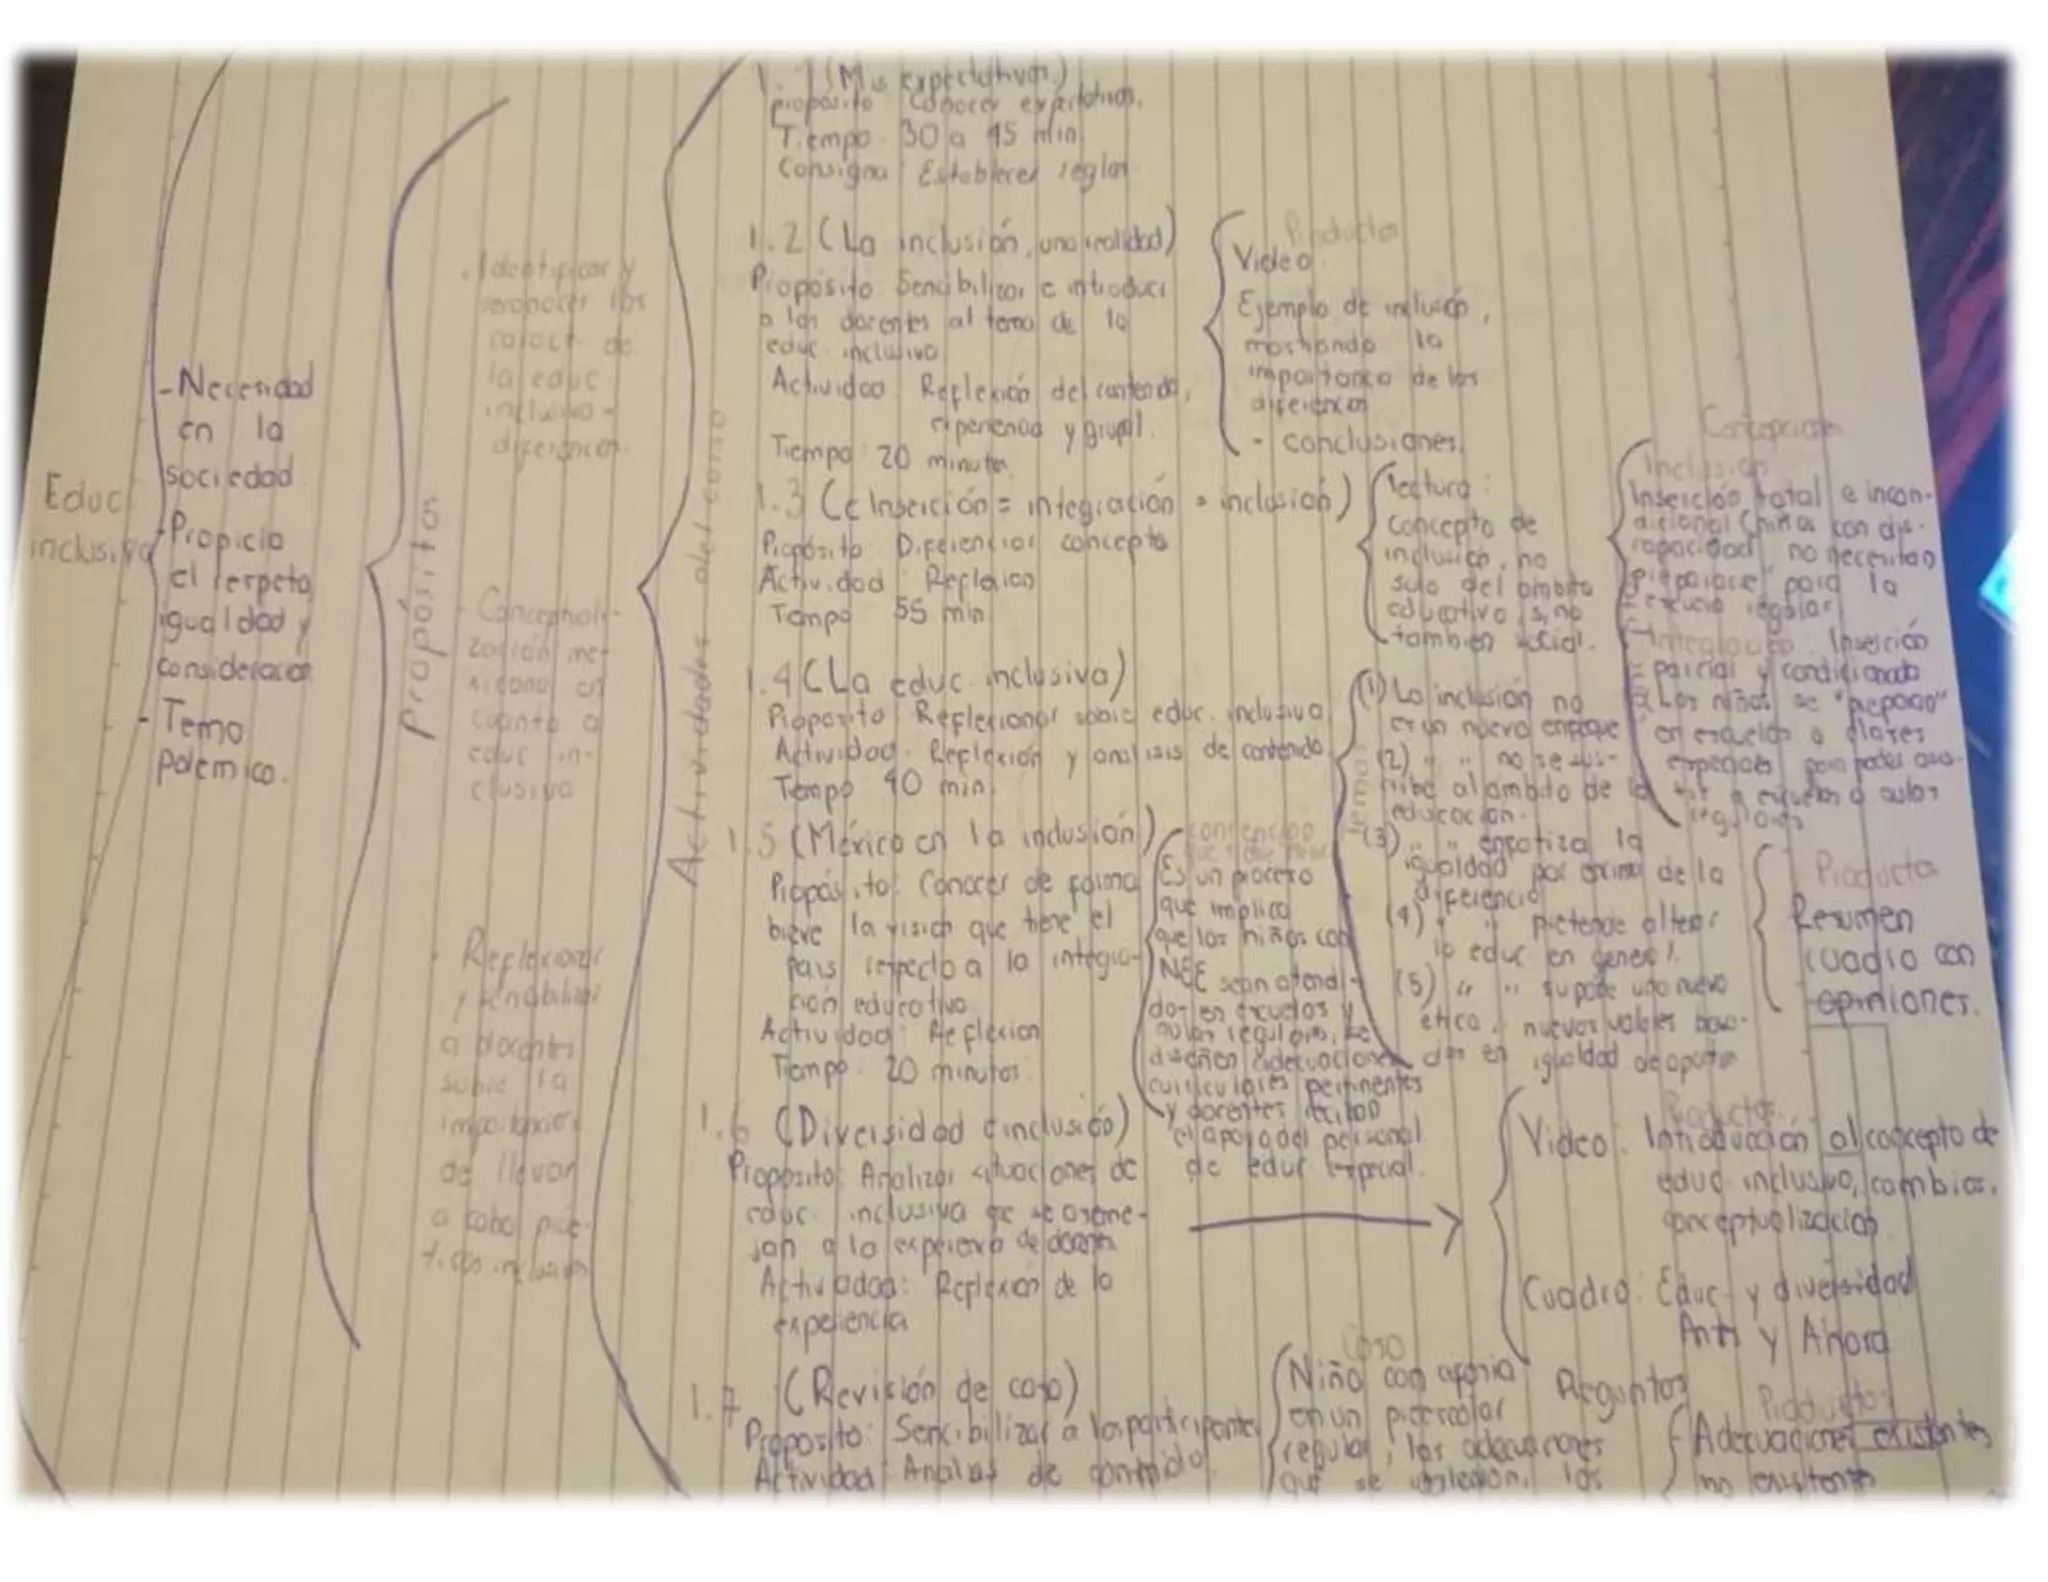 Educ.
inclusiva
- Necesidad
en la
sociedad
- Propicia
el respeto,
igualdad y
consideración
- Tema
polemico.
Propósitos
. Identificar y
reconocer las
caract. de
la educ
inclusiva -
diferencias.
- Conceptuali-
zación me-
xicana en
cuanto a
educ in-
clusiva
- Reflexionar
y sensibilizar
a docentes
sobre la
importancia
de llevar
a cabo prác-
ticas inclusivas
Actividades del curso
1.1 (Mis expectativas)
propósito Conocer expectativas.
Tiempo 30 a 45 min.
Consigna Establecer reglas
1.2 (La inclusión, una realidad)
Propósito Sensibilizar e introducir
a los docentes al tema de la
educ. inclusiva
Actividad Reflexión del contenido,
experiencia y grupal.
Tiempo 20 minutos
Productos
Video
Ejemplo de inclusión,
mostrando la
importancia de las
diferencias
- conclusiones.
1.3 (¿Inserción = integración = inclusión)
Propósito Diferenciar concepto
Actividad Reflexion
Tiempo 55 min
lectura:
concepto de
inclusión, no
solo del ambito
educativo sino
tambien social.
Concepciones
Inclusión
Inserción total e incon-
dicional (niños con dis-
capacidad no necesitan
"prepararse" para la
escuela regular
Integración. Inserción
parcial y condicionada
Los niños se "preparan"
en escuelas o clases
especiales para poder asis-
tir a escuelas o aulas
regulares
1.4 (La educ. inclusiva)
Proposito Reflexionar sobre educ. inclusiva
Actividad. Reflexión y analisis de contenido
Tiempo 40 min.
Temo:
(1) La inclusión no
es un nuevo enfoque
(2) " " no se sus-
cribe al ambito de la
educacion.
(3) " " enfatiza la
igualdad por encima de la
diferencia
(4) " " pretende alterar
la educ en general.
(5) " " supone una nueva
ética, nuevos valores basa-
dos en igualdad de oportu
Productos
Resumen
cuadro con
opiniones.
1.5 (México en la inclusión)
Propósito: Conocer de forma
breve la visión que tiene el
pais respecto a la integra-
ción educativa.
Actividad: Reflexion
Tiempo: 20 minutos
Es un proceso
que implica
que los niños con
NEE sean atendi-
dos en escuelas y
aulas regulares, se
diseñen adecuaciones
curriculares pertinentes
y docentes reciban
el apoyo del personal
de educ especial.
1.6 (Diversidad e inclusión)
Proposito: Analizar situaciones de
educ. inclusiva que se aseme-
jan a la experiencia de docentes
Actividad: Reflexion de la
experiencia
Productos
Video: Introducción al concepto de
educ inclusiva, cambios,
conceptualización
Cuadro: Educ y diversidad
Antes y Ahora
1.7 (Revisión de caso)
Proposito: Sensibilizar a los participantes
Actividad: Analisis de contenido.
Caso
Niño con
en un preescolar
regular, las adecuaciones
que se las
Preguntas
Productos
Adecuaciones existentes
no existentes